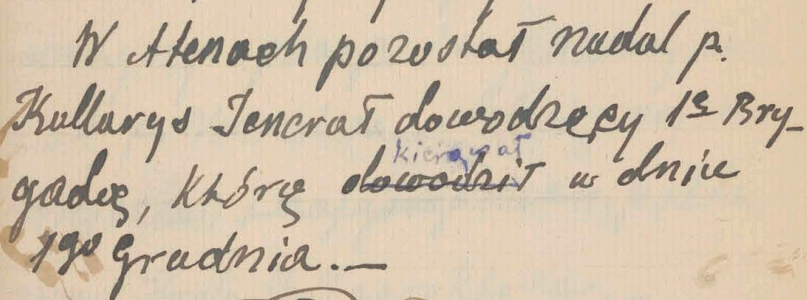 W Atenach pozostał nadal p.
Kallarys Jenerał dowodzący 1ą Bry-
gadą, którą kierował dowodził w dniu
1go Grudnia.—